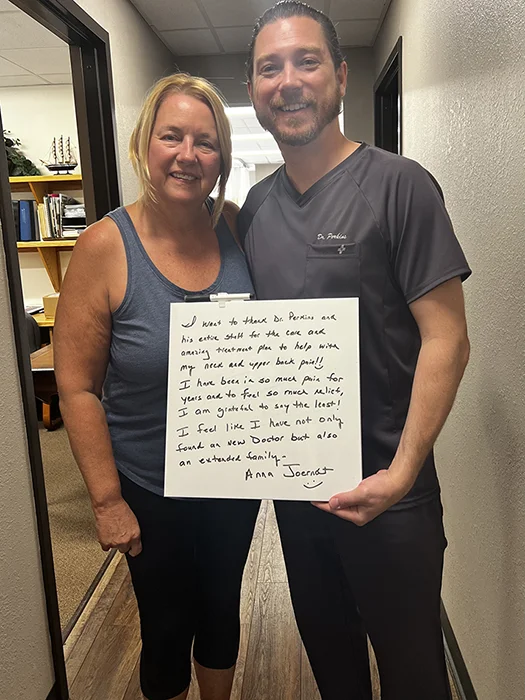 Dr. Perkins
I want to thank Dr. Perkins and
his entire staff for the care and
amazing treatment plan to help with
my neck and upper back pain!!
I have been in so much pain for
years and to feel so much relief,
I am grateful to say the least!
I feel like I have not only
found an new Doctor but also
an extended family-
Anna